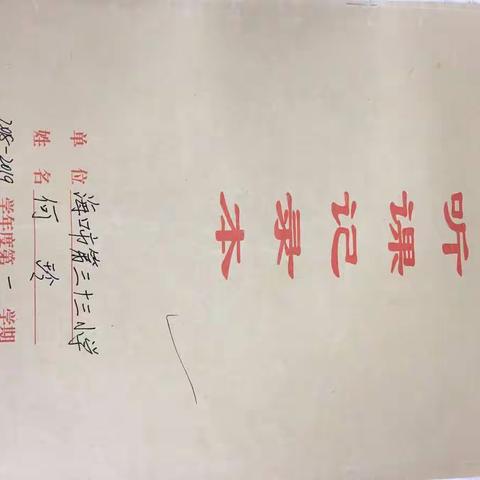 听课记录本
单位 海口市第三十三小学
姓名 何玲
2018-2019 学年度第 一 学期